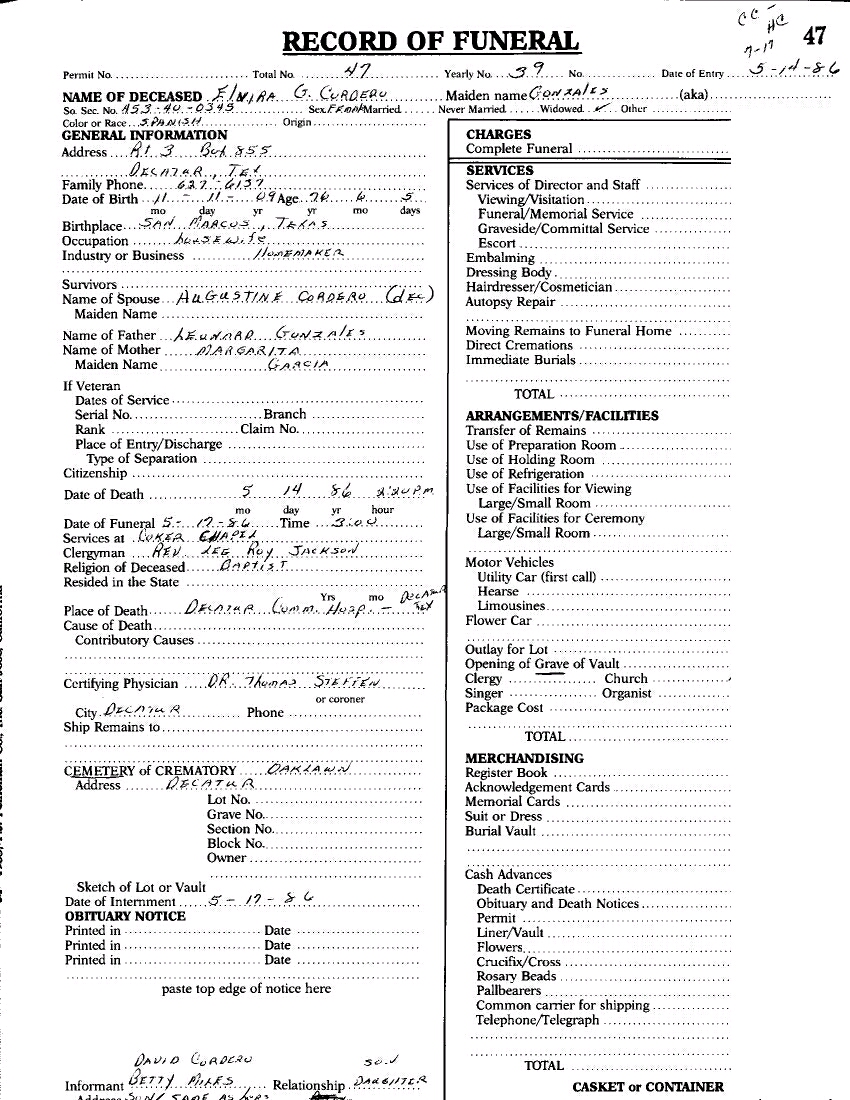 CC -
HC
RECORD OF FUNERAL 47
7-17
Permit No. Total No. 47 Yearly No. 39 No. Date of Entry 5-14-86
NAME OF DECEASED Elvira G. Cordero Maiden name Gonzales (aka)
So. Sec. No. 453-40-0345 Sex Fem Married Never Married Widowed ✓ Other
Color or Race SPANISH Origin
GENERAL INFORMATION
Address Rt 3 Box 855
Decatur, Tex
Family Phone 627-6137
Date of Birth 11 - 11 - 09 Age 76 6 5
mo day yr yr mo days
Birthplace San Marcus, Texas
Occupation housewife
Industry or Business Homemaker
Survivors
Name of Spouse Augustine Cordero (dec)
Maiden Name
Name of Father Leonard Gonzales
Name of Mother Margarita
Maiden Name Garcia
If Veteran
Dates of Service
Serial No. Branch
Rank Claim No.
Place of Entry/Discharge
Type of Separation
Citizenship
Date of Death 5 14 86 2:20 PM
mo day yr hour
Date of Funeral 5-17-86 Time 3:00
Services at Coker Chapel
Clergyman Rev Lee Roy Jackson
Religion of Deceased Baptist
Resided in the State
Yrs mo
Place of Death Decatur Comm. Hosp. - Decatur Tex
Cause of Death
Contributory Causes
Certifying Physician DR. Thomas Steffen
or coroner
City Decatur Phone
Ship Remains to
CEMETERY of CREMATORY Oaklawn
Address Decatur
Lot No.
Grave No.
Section No.
Block No.
Owner
Sketch of Lot or Vault
Date of Internment 5-17-86
OBITUARY NOTICE
Printed in Date
Printed in Date
Printed in Date
paste top edge of notice here
David Cordero son
Informant Betty Miles Relationship Daughter
Address Son/ Same as
CHARGES
Complete Funeral
SERVICES
Services of Director and Staff
Viewing/Visitation
Funeral/Memorial Service
Graveside/Committal Service
Escort
Embalming
Dressing Body
Hairdresser/Cosmetician
Autopsy Repair
Moving Remains to Funeral Home
Direct Cremations
Immediate Burials
TOTAL
ARRANGEMENTS/FACILITIES
Transfer of Remains
Use of Preparation Room
Use of Holding Room
Use of Refrigeration
Use of Facilities for Viewing
Large/Small Room
Use of Facilities for Ceremony
Large/Small Room
Motor Vehicles
Utility Car (first call)
Hearse
Limousines
Flower Car
Outlay for Lot
Opening of Grave of Vault
Clergy Church
Singer Organist
Package Cost
TOTAL
MERCHANDISING
Register Book
Acknowledgement Cards
Memorial Cards
Suit or Dress
Burial Vault
Cash Advances
Death Certificate
Obituary and Death Notices
Permit
Liner/Vault
Flowers
Crucifix/Cross
Rosary Beads
Pallbearers
Common carrier for shipping
Telephone/Telegraph
TOTAL
CASKET or CONTAINER